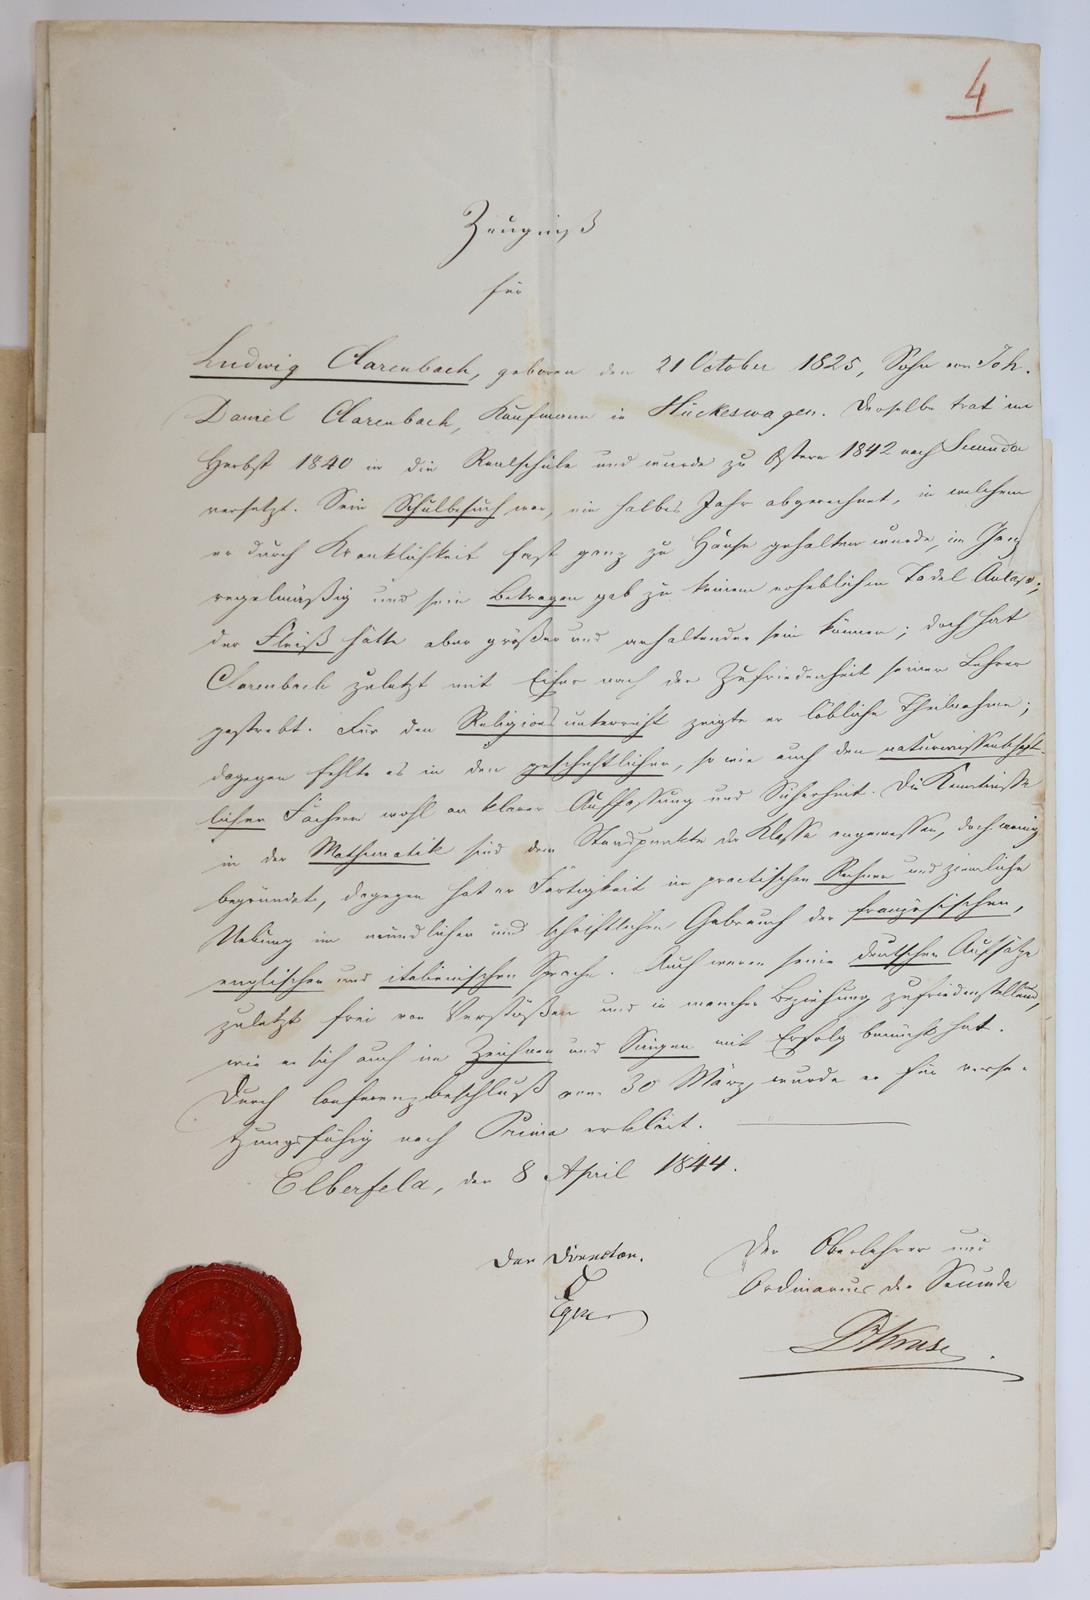 4
Zeugniß
für
Ludwig Clarenbach, geboren den 21 October 1825, Sohn von Joh.
Daniel Clarenbach, Kaufmann in Hückeswagen. Derselbe trat im
Herbst 1840 in die Realschule und wurde zu Ostern 1842 nach Secunda
versetzt. Sein Schulbesuch war, ein halbes Jahr abgerechnet, in welchem
er durch Kränklichkeit fast ganz zu Hause gehalten wurde, im Ganz
regelmäßig und sein Betragen gab zu keinem erheblichen Tadel Anlaß;
der Fleiß hätte aber größer und anhaltender sein können; doch hat
Clarenbach zuletzt mit Eifer nach der Zufriedenheit seiner Lehrer
gestrebt. Für den Religionsunterricht zeigte er löbliche Theilnahme;
dagegen fehlte es in den geschichtlichen, so wie auch den naturwissenschaft-
lichen Fächern wohl an klarer Auffassung und Sicherheit. Die Kenntnisse
in der Mathematik sind dem Standpunkte der Klasse angemessen, doch wenig
begründet, dagegen hat er Fertigkeit im practischen Rechnen und ziemliche
Uebung im mündlichen und schriftlichen Gebrauch der französischen,
englischen und italienischen Sprache. Auch waren seine deutschen Aufsätze
zuletzt frei von Verstößen und in mancher Beziehung zufriedenstellend,
wie er sich auch im Zeichnen und Singen mit Erfolg bemüht hat.
Durch Conferenzbeschluß vom 30 März wurde er für verse-
tzungsfähig nach Prima erklärt.
Elberfeld, den 8 April 1844.
Der Director.
Egen
Der Oberlehrer und
Ordinarius der Secunda
Dr Kruse